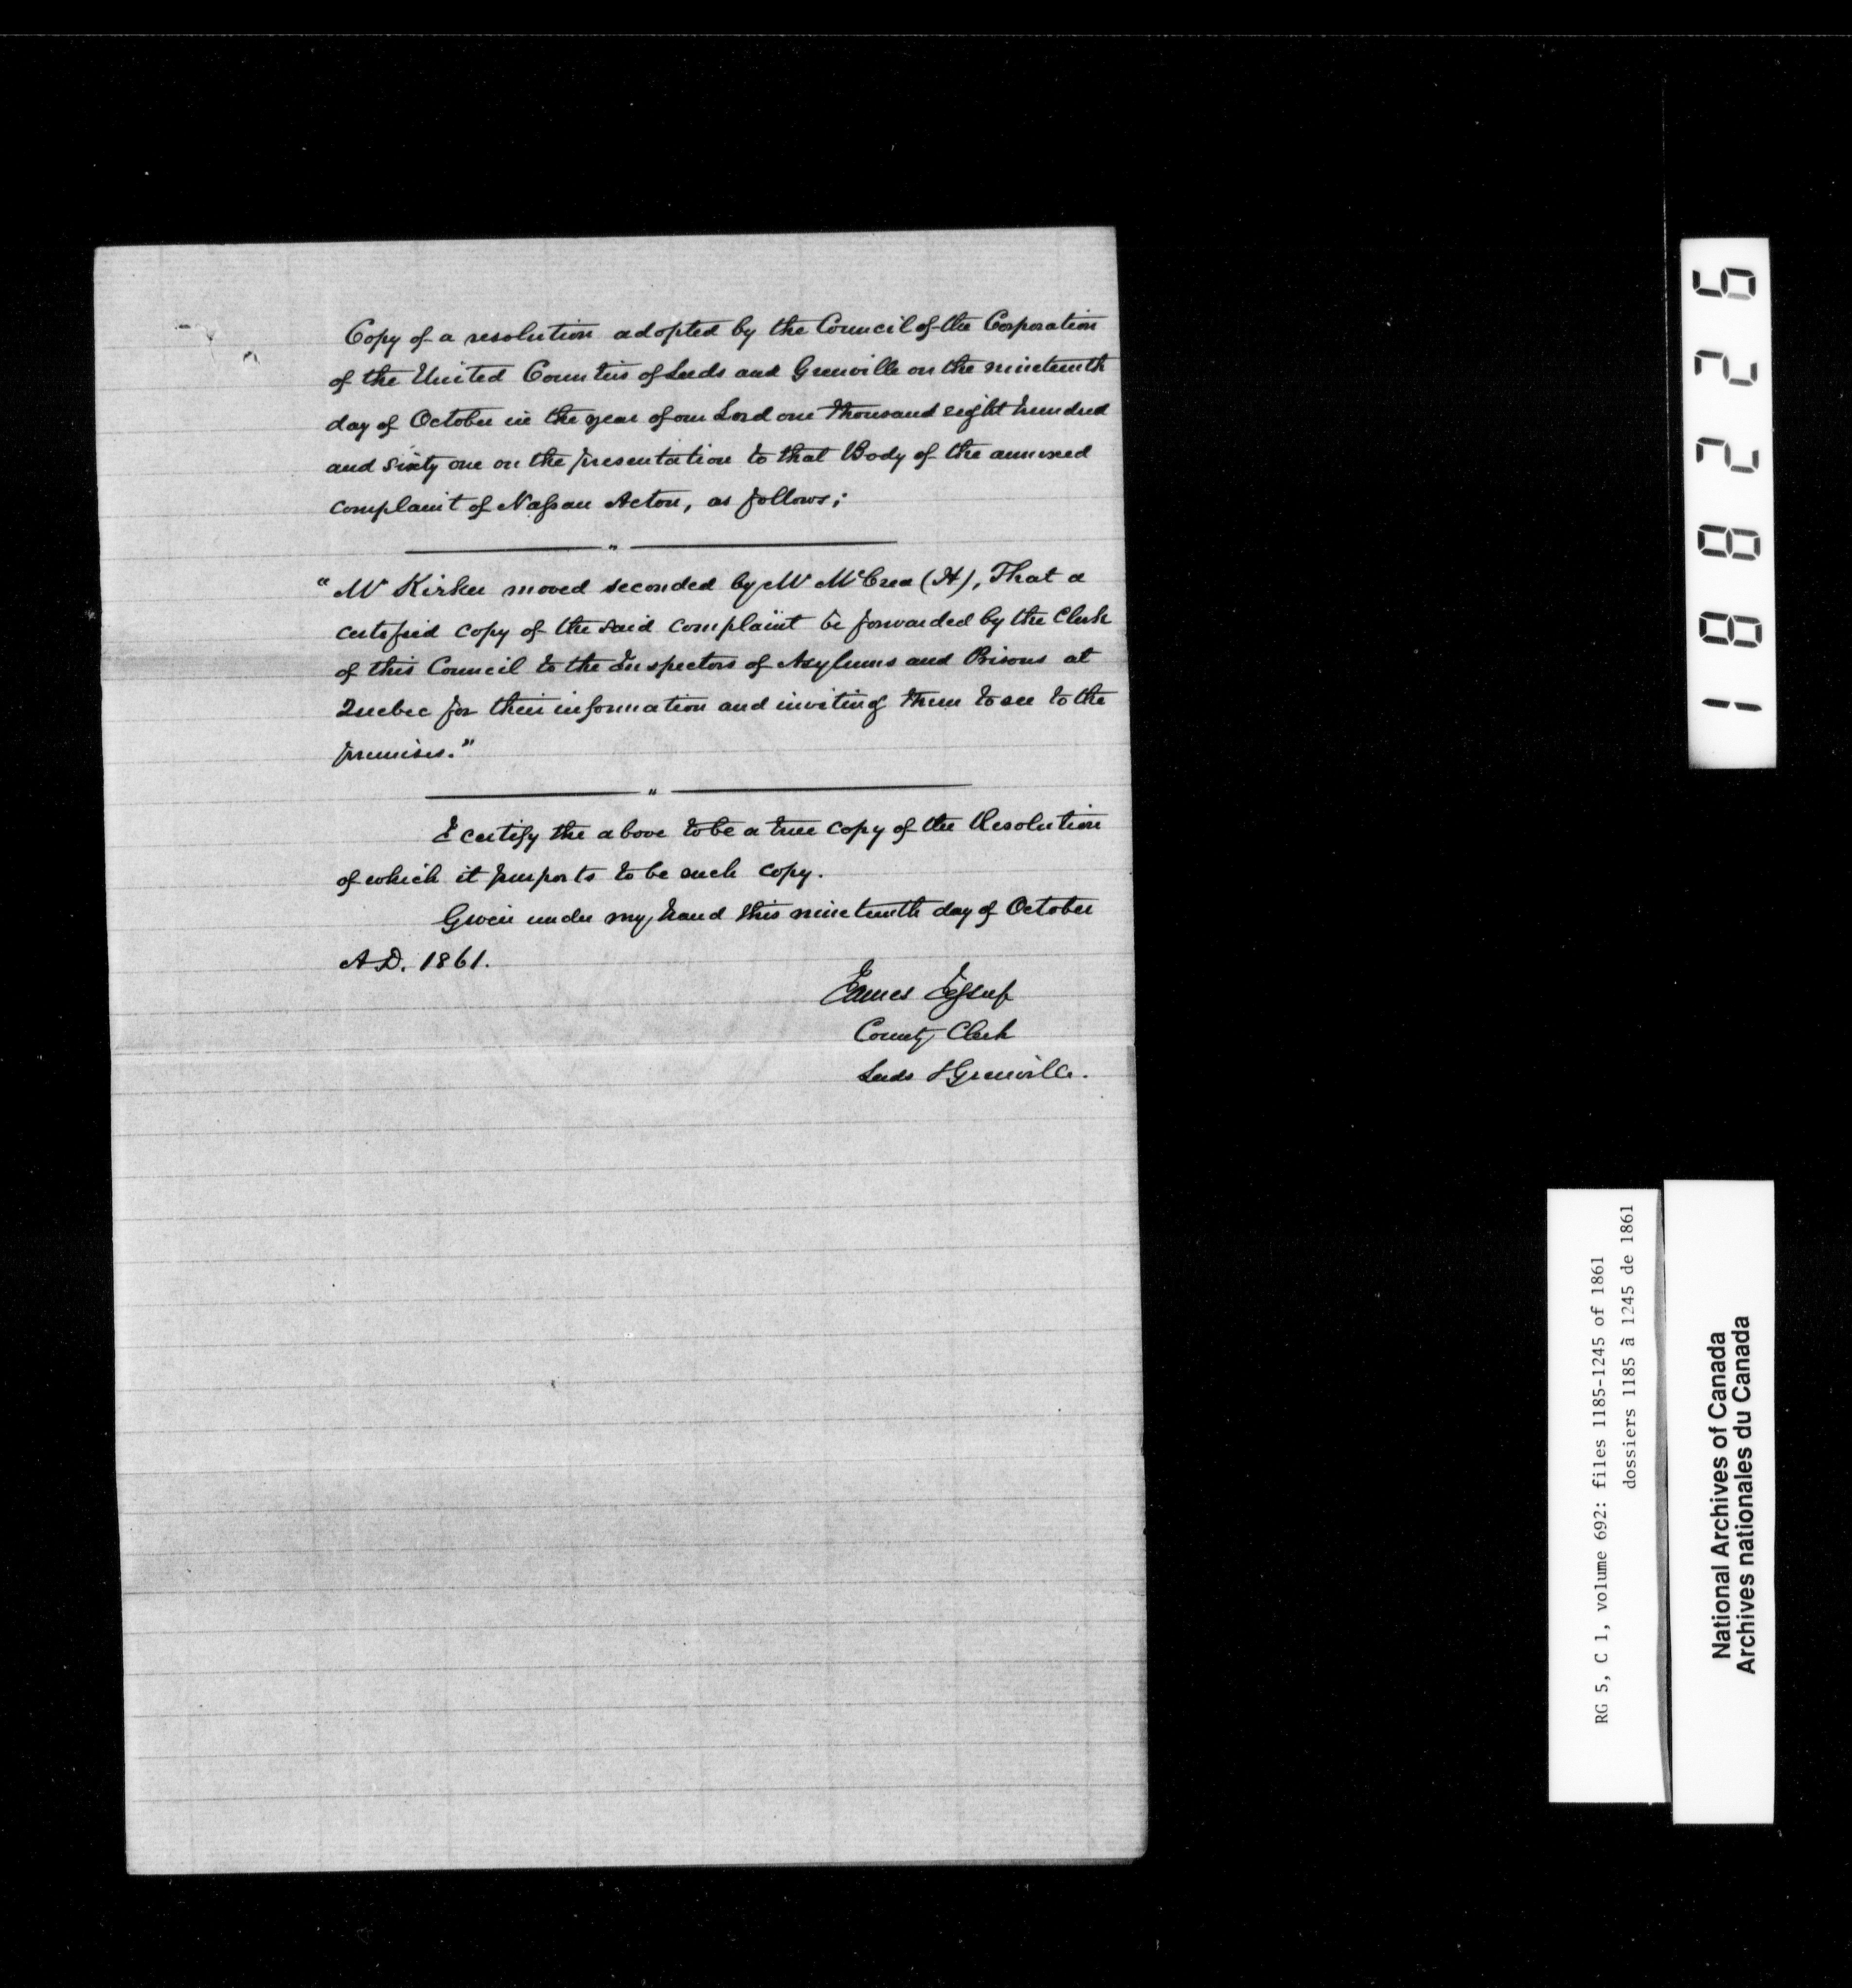 Copy of a resolution adopted by the Council of the Corporation
of the United Counties of Leeds and Grenville on the nineteenth
day of October in the year of our Lord one thousand eight hundred
and sixty one on the presentation to that Body of the annexed
complaint of Nassau Acton, as follows;
"Mr Kirker moved seconded by Mr McCrea (H), That a
certified copy of the said complaint be forwarded by the Clerk
of this Council to the Inspectors of Asylums and Prisons at
Quebec for their information and inviting them to see to the
premises."
I certify the above to be a true copy of the Resolution
of which it purports to be such copy.
Given under my hand this nineteenth day of October
A.D. 1861.
James Jessup
County Clerk
Leeds & Grenville.
188226
RG 5, C 1, volume 692: files 1185-1245 of 1861
dossiers 1185 à 1245 de 1861
National Archives of Canada
Archives nationales du Canada